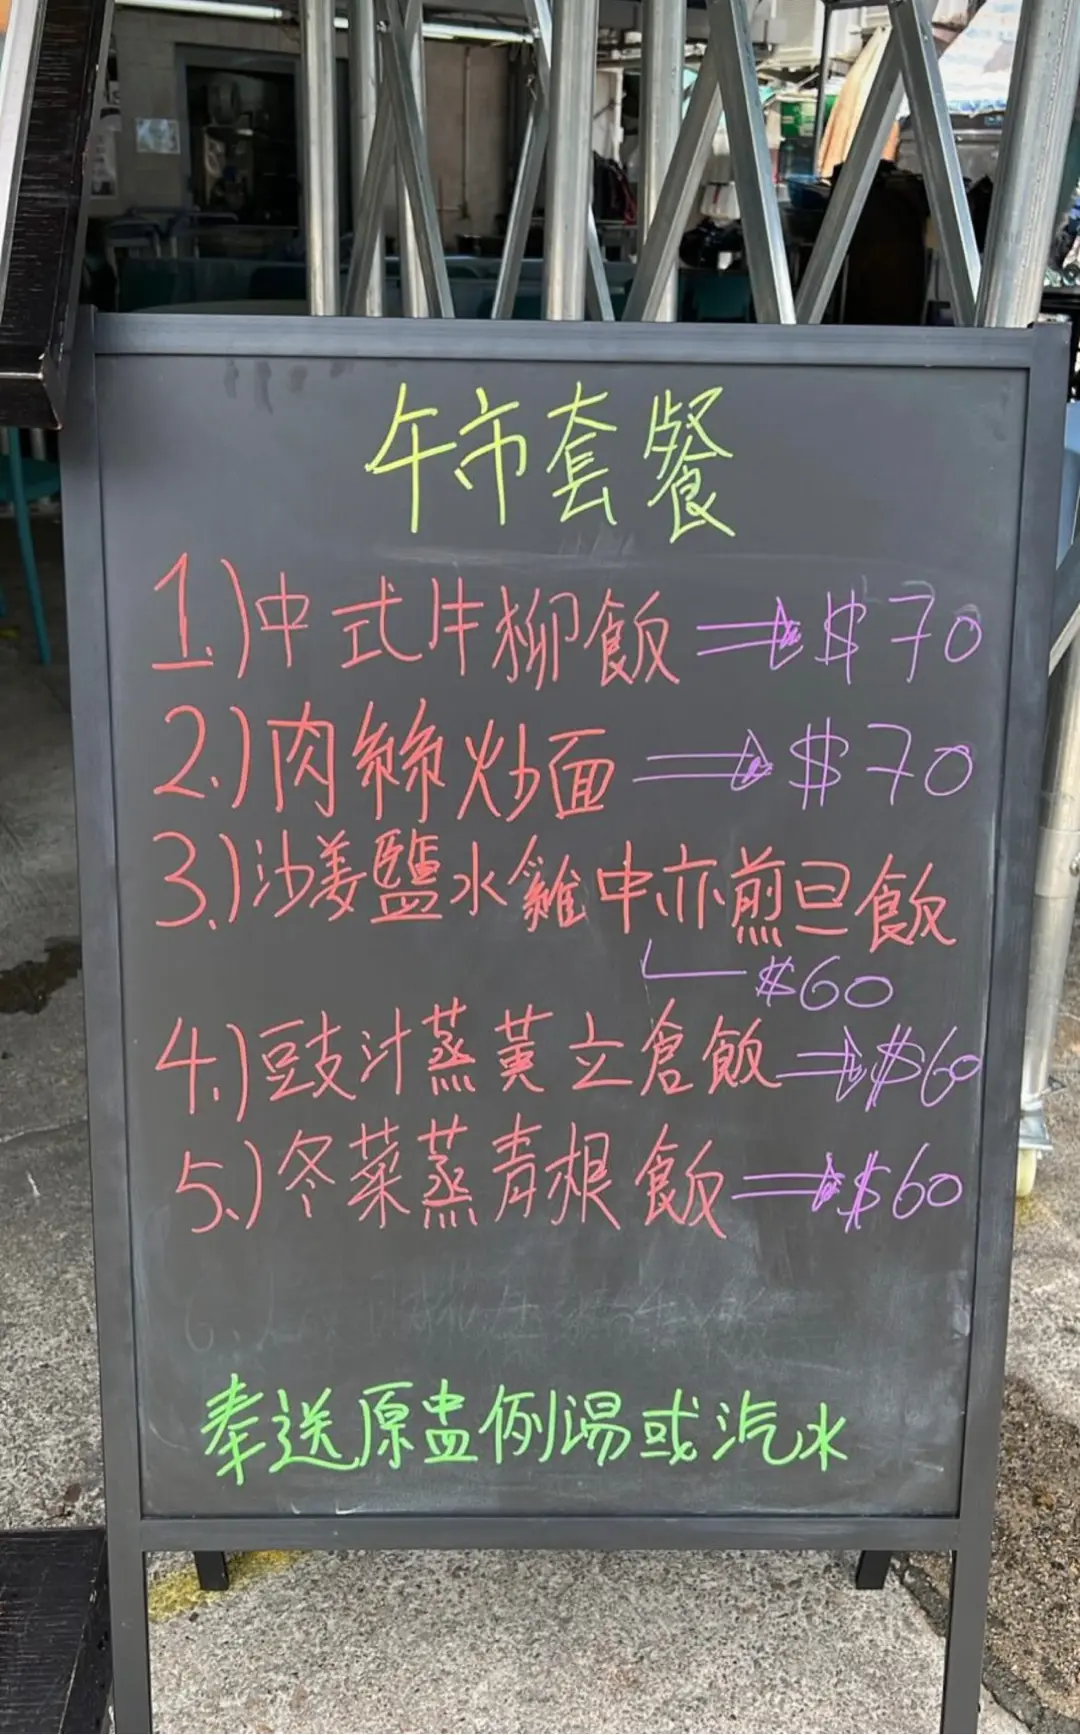 午市套餐
1.)中式牛柳飯 ⇒ $70
2.)肉絲炒面 ⇒ $70
3.)沙姜鹽水雞中亦煎旦飯
$60
4.)豉汁蒸黃立倉飯 ⇒ $60
5.)冬菜蒸青根飯 ⇒ $60
奉送原盅例湯或汽水